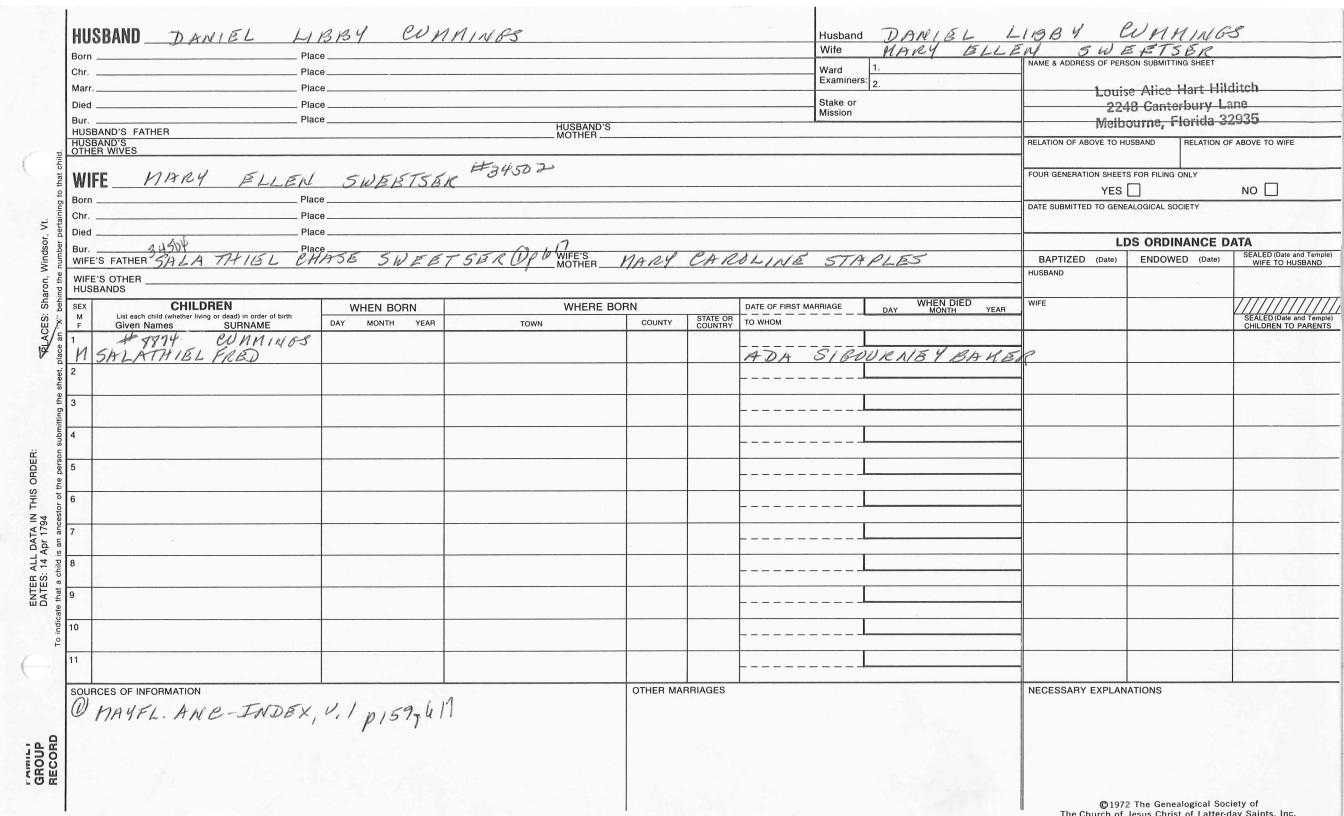 HUSBAND DANIEL LIBBY CUMMINGS
Born Place
Chr. Place
Marr. Place
Died Place
Bur. Place
HUSBAND'S FATHER HUSBAND'S MOTHER
HUSBAND'S OTHER WIVES
Husband DANIEL LIBBY CUMMINGS
Wife MARY ELLEN SWEETSER
Ward Examiners: 1.
2.
Stake or Mission
NAME & ADDRESS OF PERSON SUBMITTING SHEET
Louise Alice Hart Hilditch
2248 Canterbury Lane
Melbourne, Florida 32935
RELATION OF ABOVE TO HUSBAND RELATION OF ABOVE TO WIFE
FOUR GENERATION SHEETS FOR FILING ONLY
YES NO
DATE SUBMITTED TO GENEALOGICAL SOCIETY
WIFE MARY ELLEN SWEETSER #34502
Born Place
Chr. Place
Died Place
Bur. Place
34504
WIFE'S FATHER SALATHIEL CHASE SWEETSER ① p 617 WIFE'S MOTHER MARY CAROLINE STAPLES
WIFE'S OTHER HUSBANDS
LDS ORDINANCE DATA
BAPTIZED (Date) ENDOWED (Date) SEALED (Date and Temple) WIFE TO HUSBAND
HUSBAND
WIFE
SEALED (Date and Temple) CHILDREN TO PARENTS
SEX M F
CHILDREN
List each child (whether living or dead) in order of birth
Given Names SURNAME
WHEN BORN
DAY MONTH YEAR
WHERE BORN
TOWN COUNTY STATE OR COUNTRY
DATE OF FIRST MARRIAGE
TO WHOM
WHEN DIED
DAY MONTH YEAR
1 #8874 CUMMINGS
M SALATHIEL FRED ADA SIGOURNEY BAKER
2
3
4
5
6
7
8
9
10
11
SOURCES OF INFORMATION
① MAYFL. ANC-INDEX, V.1 p159, 617
OTHER MARRIAGES
NECESSARY EXPLANATIONS
©1972 The Genealogical Society of
The Church of Jesus Christ of Latter-day Saints, Inc.
PLACES: Sharon, Windsor, Vt.
ENTER ALL DATA IN THIS ORDER:
DATES: 14 Apr 1794
To indicate that a child is an ancestor of the person submitting the sheet, place an "X" behind the number pertaining to that child.
FAMILY GROUP RECORD